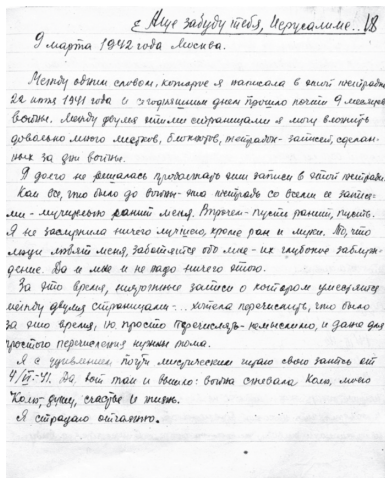 Аще забуду тебя, Иерусалиме... 18
9 марта 1942 года Москва.
Между одним словом, которое я написала в этой тетради
22 июня 1941 года и сегодняшним днем прошло почти 9 месяцев
войны. Между двумя этими страницами я могу вложить
довольно много листков, блокнотов, тетрадок - записей, сделан-
ных за дни войны.
Я долго не решалась продолжать эти записи в этой тетради.
Как все, что было до войны - эта тетрадь со всеми ее запися-
ми - мучительно ранит меня. Впрочем - пусть ранит, пусть.
Я не заслужила ничего лучшего, кроме ран и муки. То, что
люди любят меня, заботятся обо мне - их глубокое заблуж-
дение. Да и мне и не надо ничего этого.
За это время, ничтожные записи о котором уместятся
между двумя страницами - ... хотела перечислить, что было
за это время, но просто перечислять - немыслимо, и даже для
простого перечисления нужны тома.
Я с удивлением почти мистическим читаю свою запись от
4/VI-41. Да, вот так и вышло: война сжевала Колю, моего
Колю, душу, счастье и жизнь.
Я страдаю отчаянно.